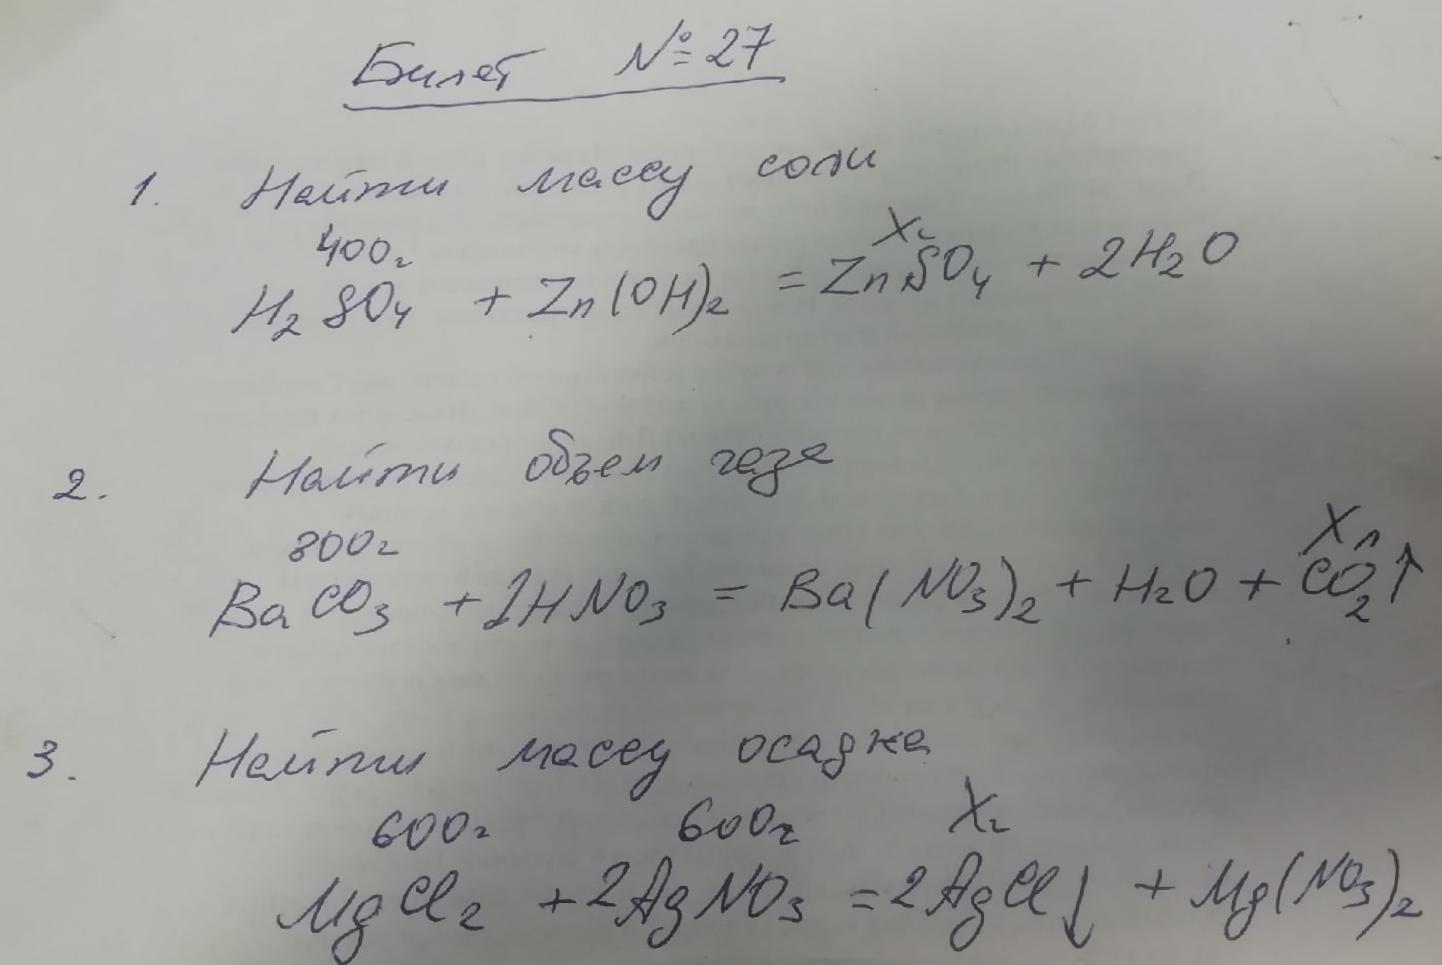 Билет № 27
1. Найти массу соли
400г Xг
H₂SO₄ + Zn(OH)₂ = ZnSO₄ + 2H₂O
2. Найти объем газа
800г Xл
BaCO₃ + 2HNO₃ = Ba(NO₃)₂ + H₂O + CO₂↑
3. Найти массу осадка
600г 600г Xг
MgCl₂ + 2AgNO₃ = 2AgCl↓ + Mg(NO₃)₂